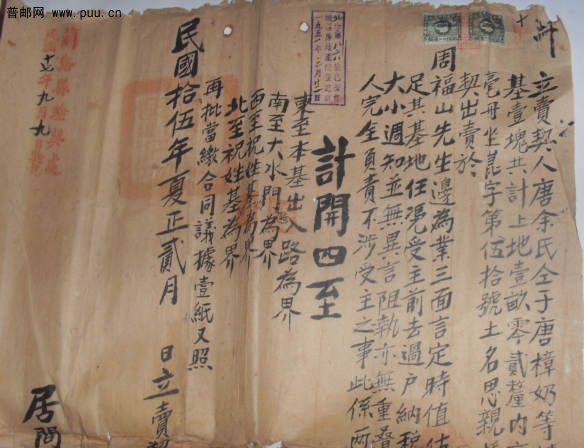 普邮网 www.puu.cn
立賣契人唐余氏仝子唐樟奶等
基壹塊共計上地壹畝零貳釐内
毫毋坐萇字第伍拾號土名思親
契出賣於
周
福山先生邊為業三面言定時值
足其基地任憑受主前去過戶納稅
大小週知並無異言阻執亦無重叠
人完全負責不涉受主之事此係兩
計開四至
東至本基出入路為界
南至大水門為界
西至祝姓基為界
北至祝姓基為界
再批當繳合同議據壹紙又照
民國拾伍年夏正貳月 日立賣契
居間
縣驗契處
九月九日